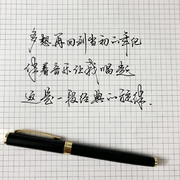 多想再回到当初小年纪
伴着音乐让我唱起
这是一段经典的旋律